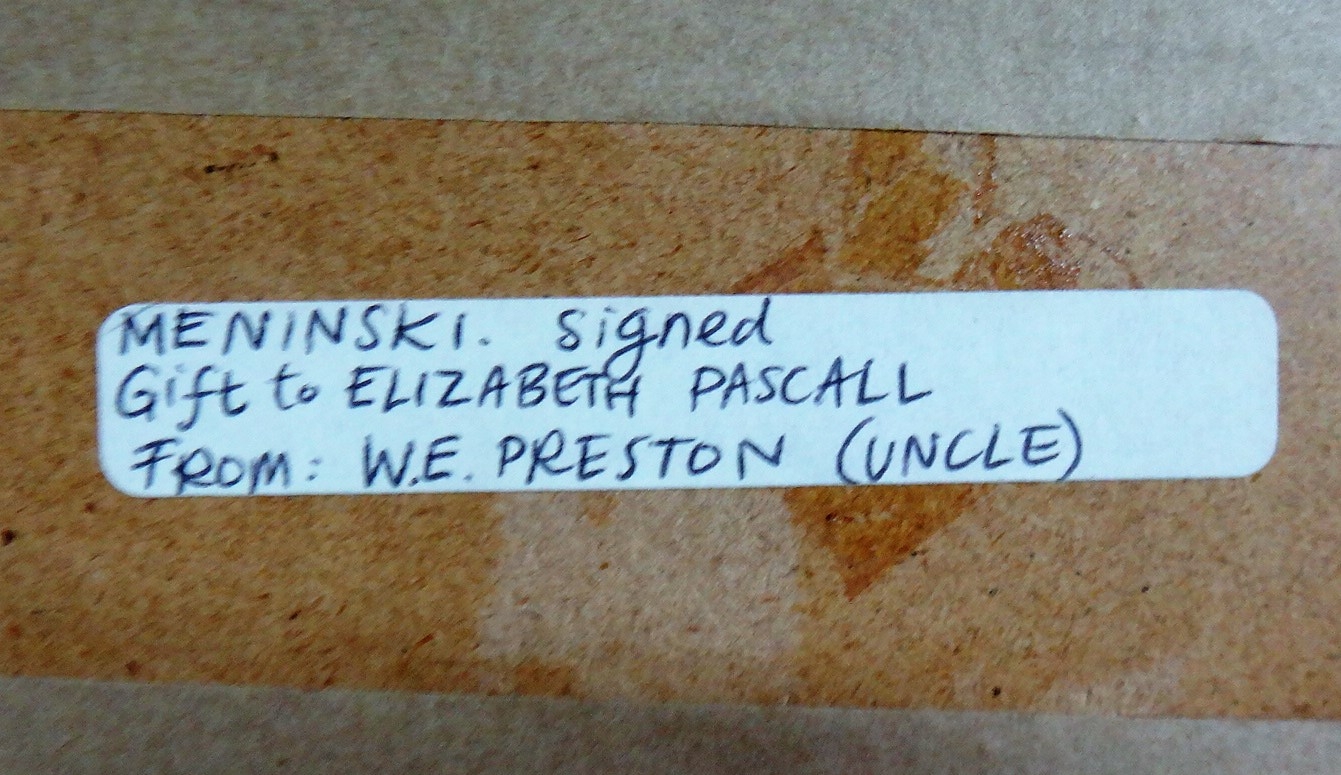 MENINSKI. signed
Gift to ELIZABETH PASCALL
FROM: W.E. PRESTON (UNCLE)